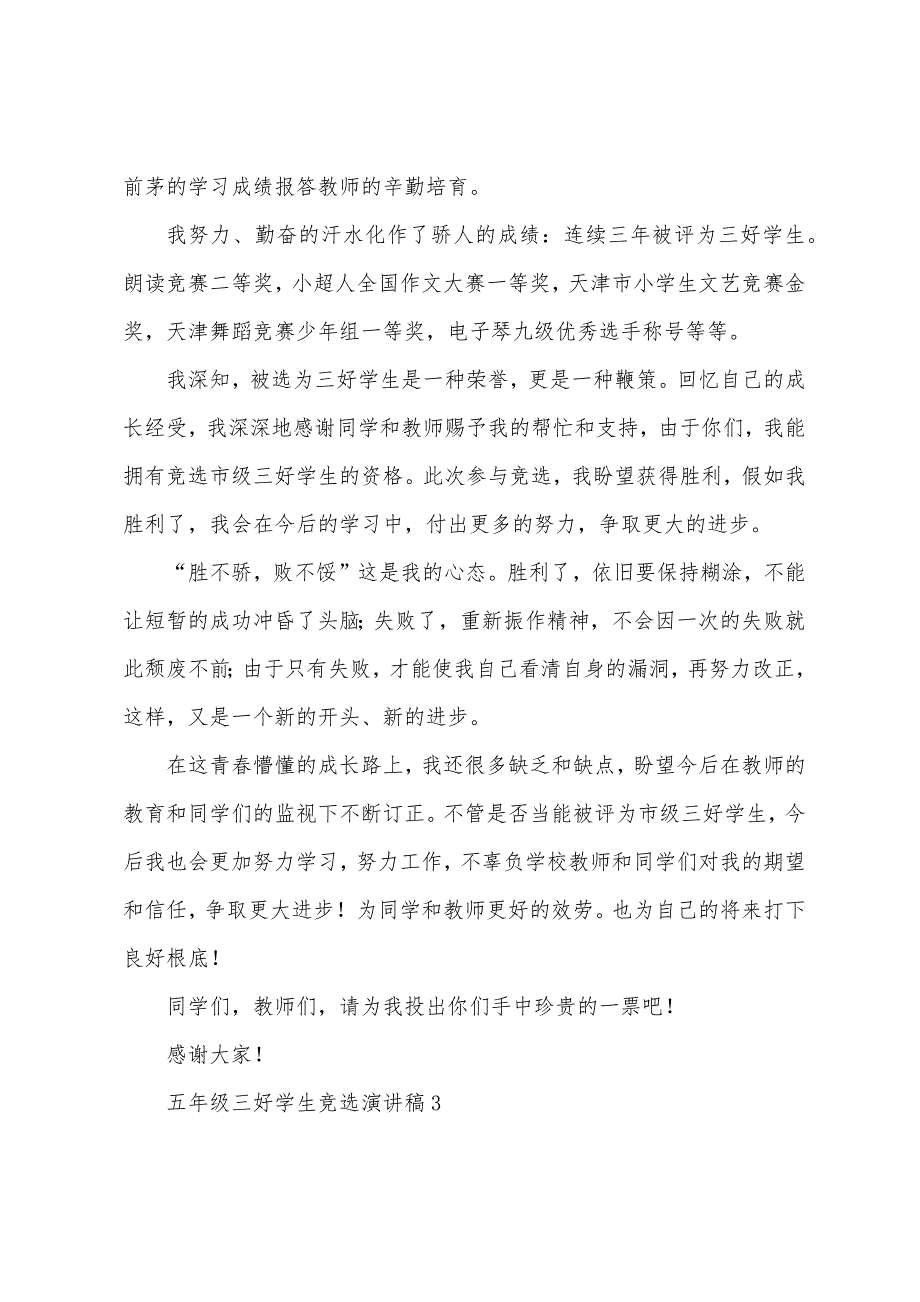 前茅的学习成绩报答教师的辛勤培育。
我努力、勤奋的汗水化作了骄人的成绩：连续三年被评为三好学生。
朗读竞赛二等奖，小超人全国作文大赛一等奖，天津市小学生文艺竞赛金
奖，天津舞蹈竞赛少年组一等奖，电子琴九级优秀选手称号等等。
我深知，被选为三好学生是一种荣誉，更是一种鞭策。回忆自己的成
长经受，我深深地感谢同学和教师赐予我的帮忙和支持，由于你们，我能
拥有竞选市级三好学生的资格。此次参与竞选，我盼望获得胜利，假如我
胜利了，我会在今后的学习中，付出更多的努力，争取更大的进步。
“胜不骄，败不馁”这是我的心态。胜利了，依旧要保持糊涂，不能
让短暂的成功冲昏了头脑；失败了，重新振作精神，不会因一次的失败就
此颓废不前；由于只有失败，才能使我自己看清自身的漏洞，再努力改正，
这样，又是一个新的开头、新的进步。
在这青春懵懂的成长路上，我还很多缺乏和缺点，盼望今后在教师的
教育和同学们的监视下不断订正。不管是否当能被评为市级三好学生，今
后我也会更加努力学习，努力工作，不辜负学校教师和同学们对我的期望
和信任，争取更大进步！为同学和教师更好的效劳。也为自己的将来打下
良好根底！
同学们，教师们，请为我投出你们手中珍贵的一票吧！
感谢大家！
五年级三好学生竞选演讲稿3